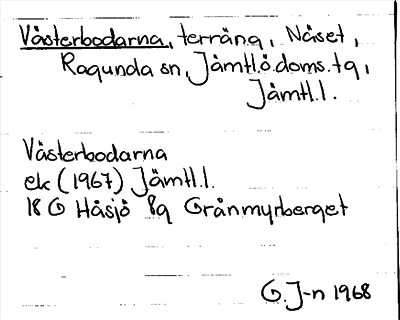 Västerbodarna, terräng, Näset,
Ragunda sn, Jämtl.ö.doms.tg,
Jämtl.l.
Västerbodarna
ek (1967) Jämtl.l.
18 G Håsjö 8g Grånmyrberget
G. J-n 1968